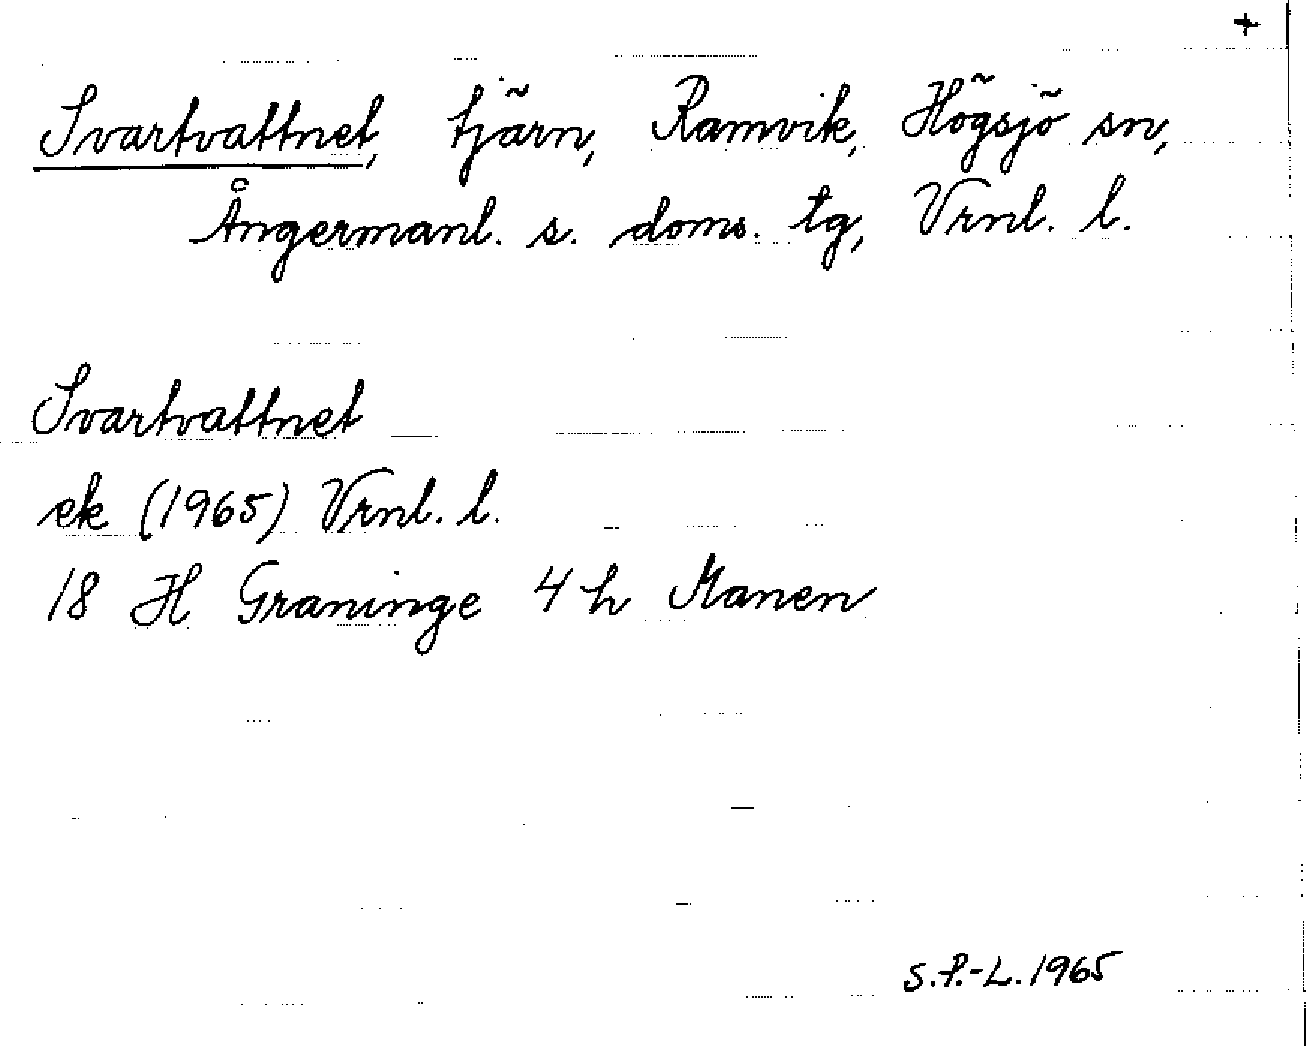 +
Svartvattnet, tjärn, Ramvik, Högsjö sn,
Ångermanl. s. doms. tg, Vrnl. l.
Svartvattnet
ek (1965) Vrnl. l.
18 H Graninge 4 h Manen
S.P.-L. 1965